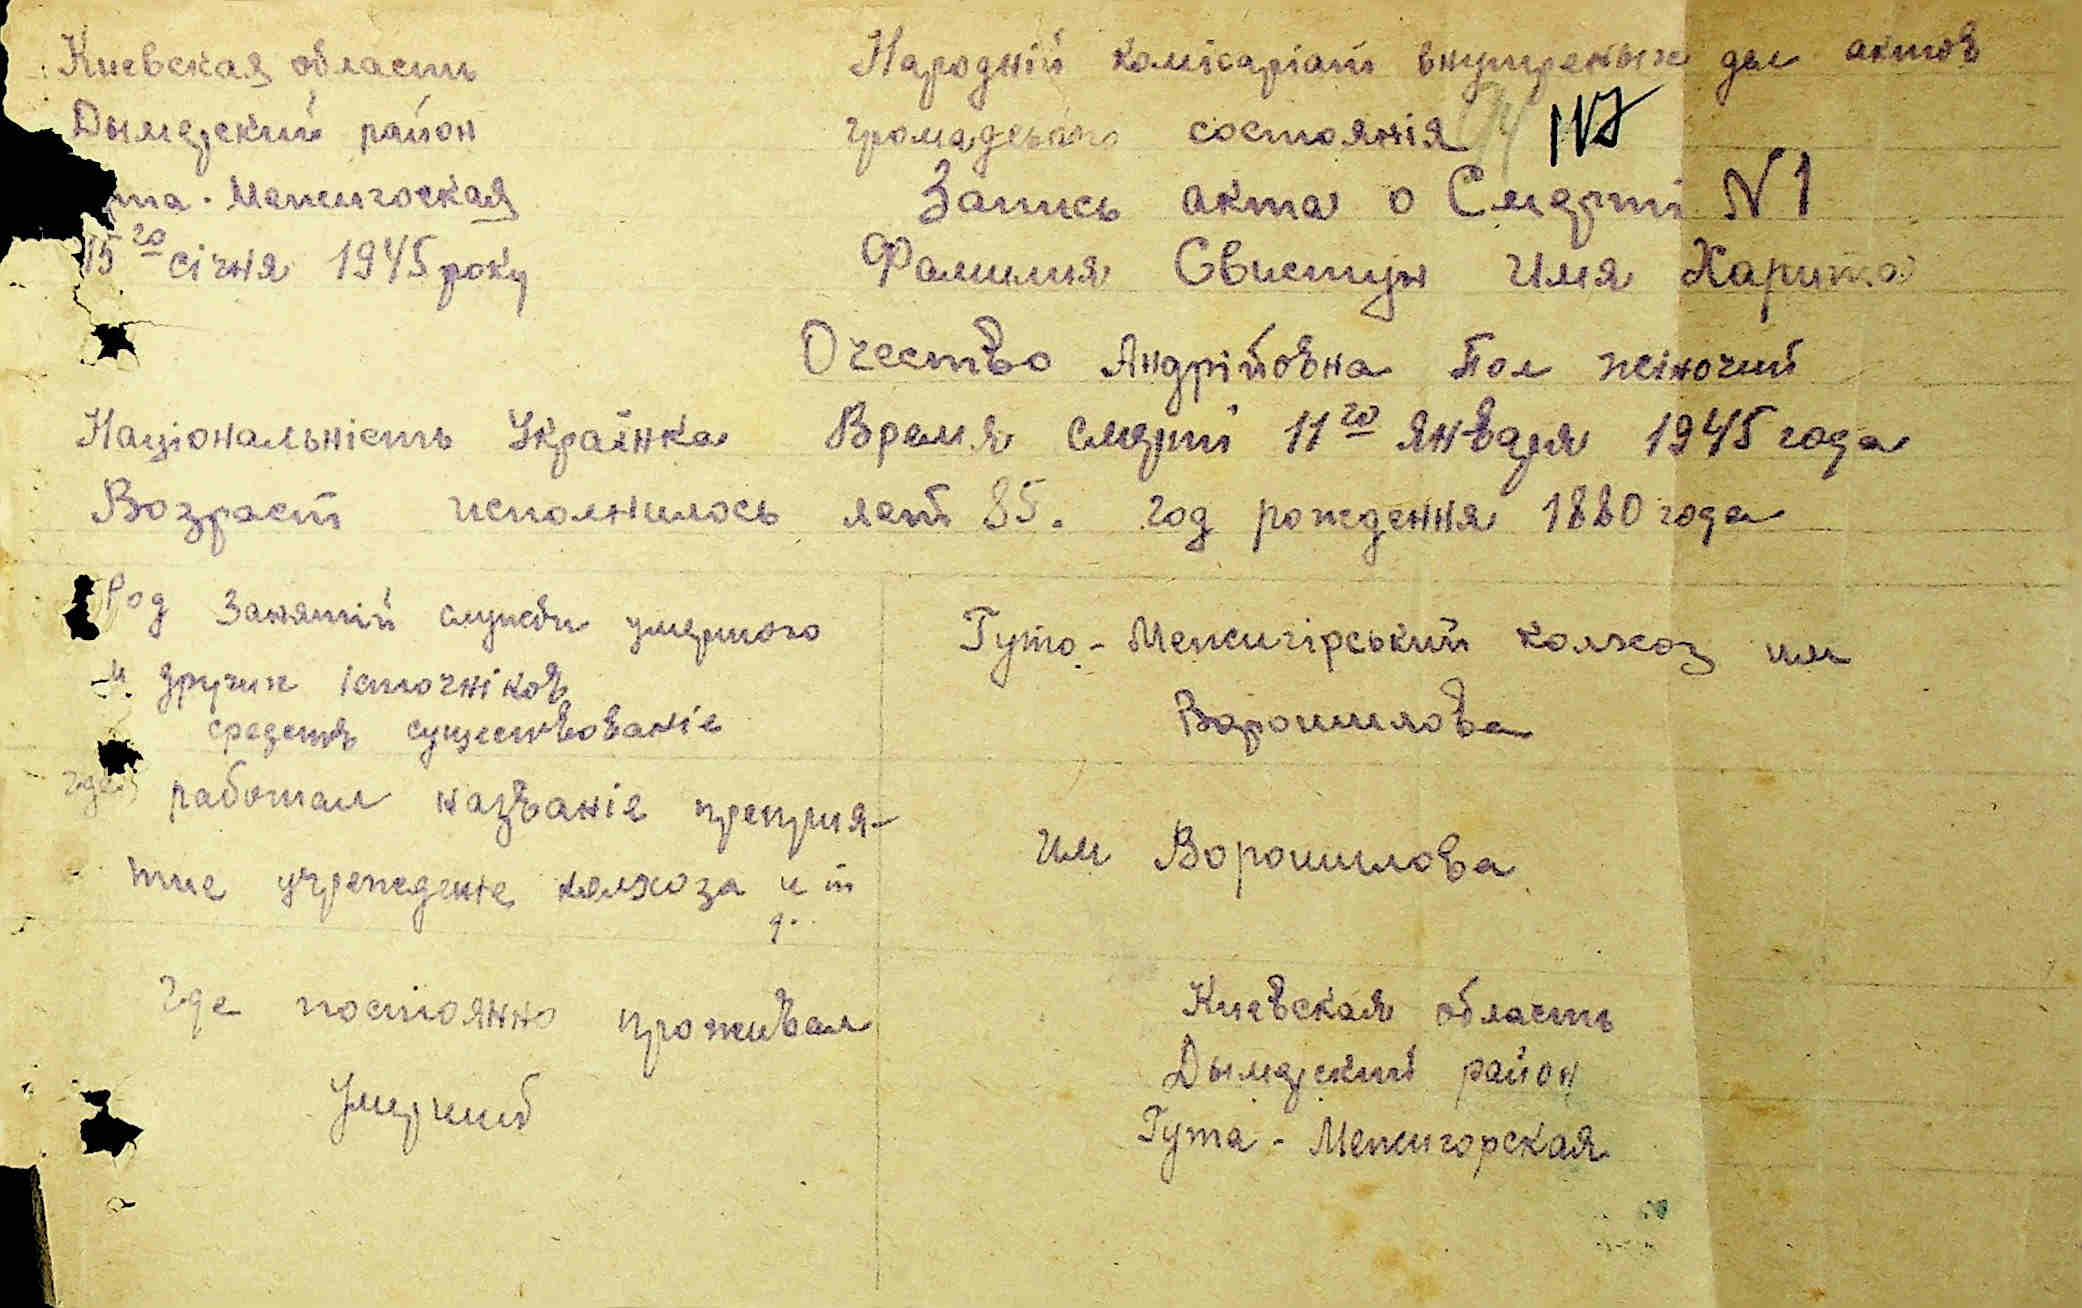 Киевская область
Дымерский район
Межигоская
15го січня 1945 року
Народній комісаріат внутрених дел актов
громадського состоянія 117
Запись акта о Смерті N1
Фамилия Свистун Имя Харита
Очество Андрійовна Пол жіночий
Національність Українка Время смерті 11го января 1945 года
Возраст исполнилось лет 85. год рождення 1880 года
Род Занятій служби умершого
и других істочніков
средств существованіе
Гуто-Межигірський колхоз им
Ворошилова
где работал названіе преприя-
тие учреждение колхоза и т
д.
им Ворошилова
Где постоянно проживал
Умерший
Киевская область
Дымерский район
Гута-Межигорская